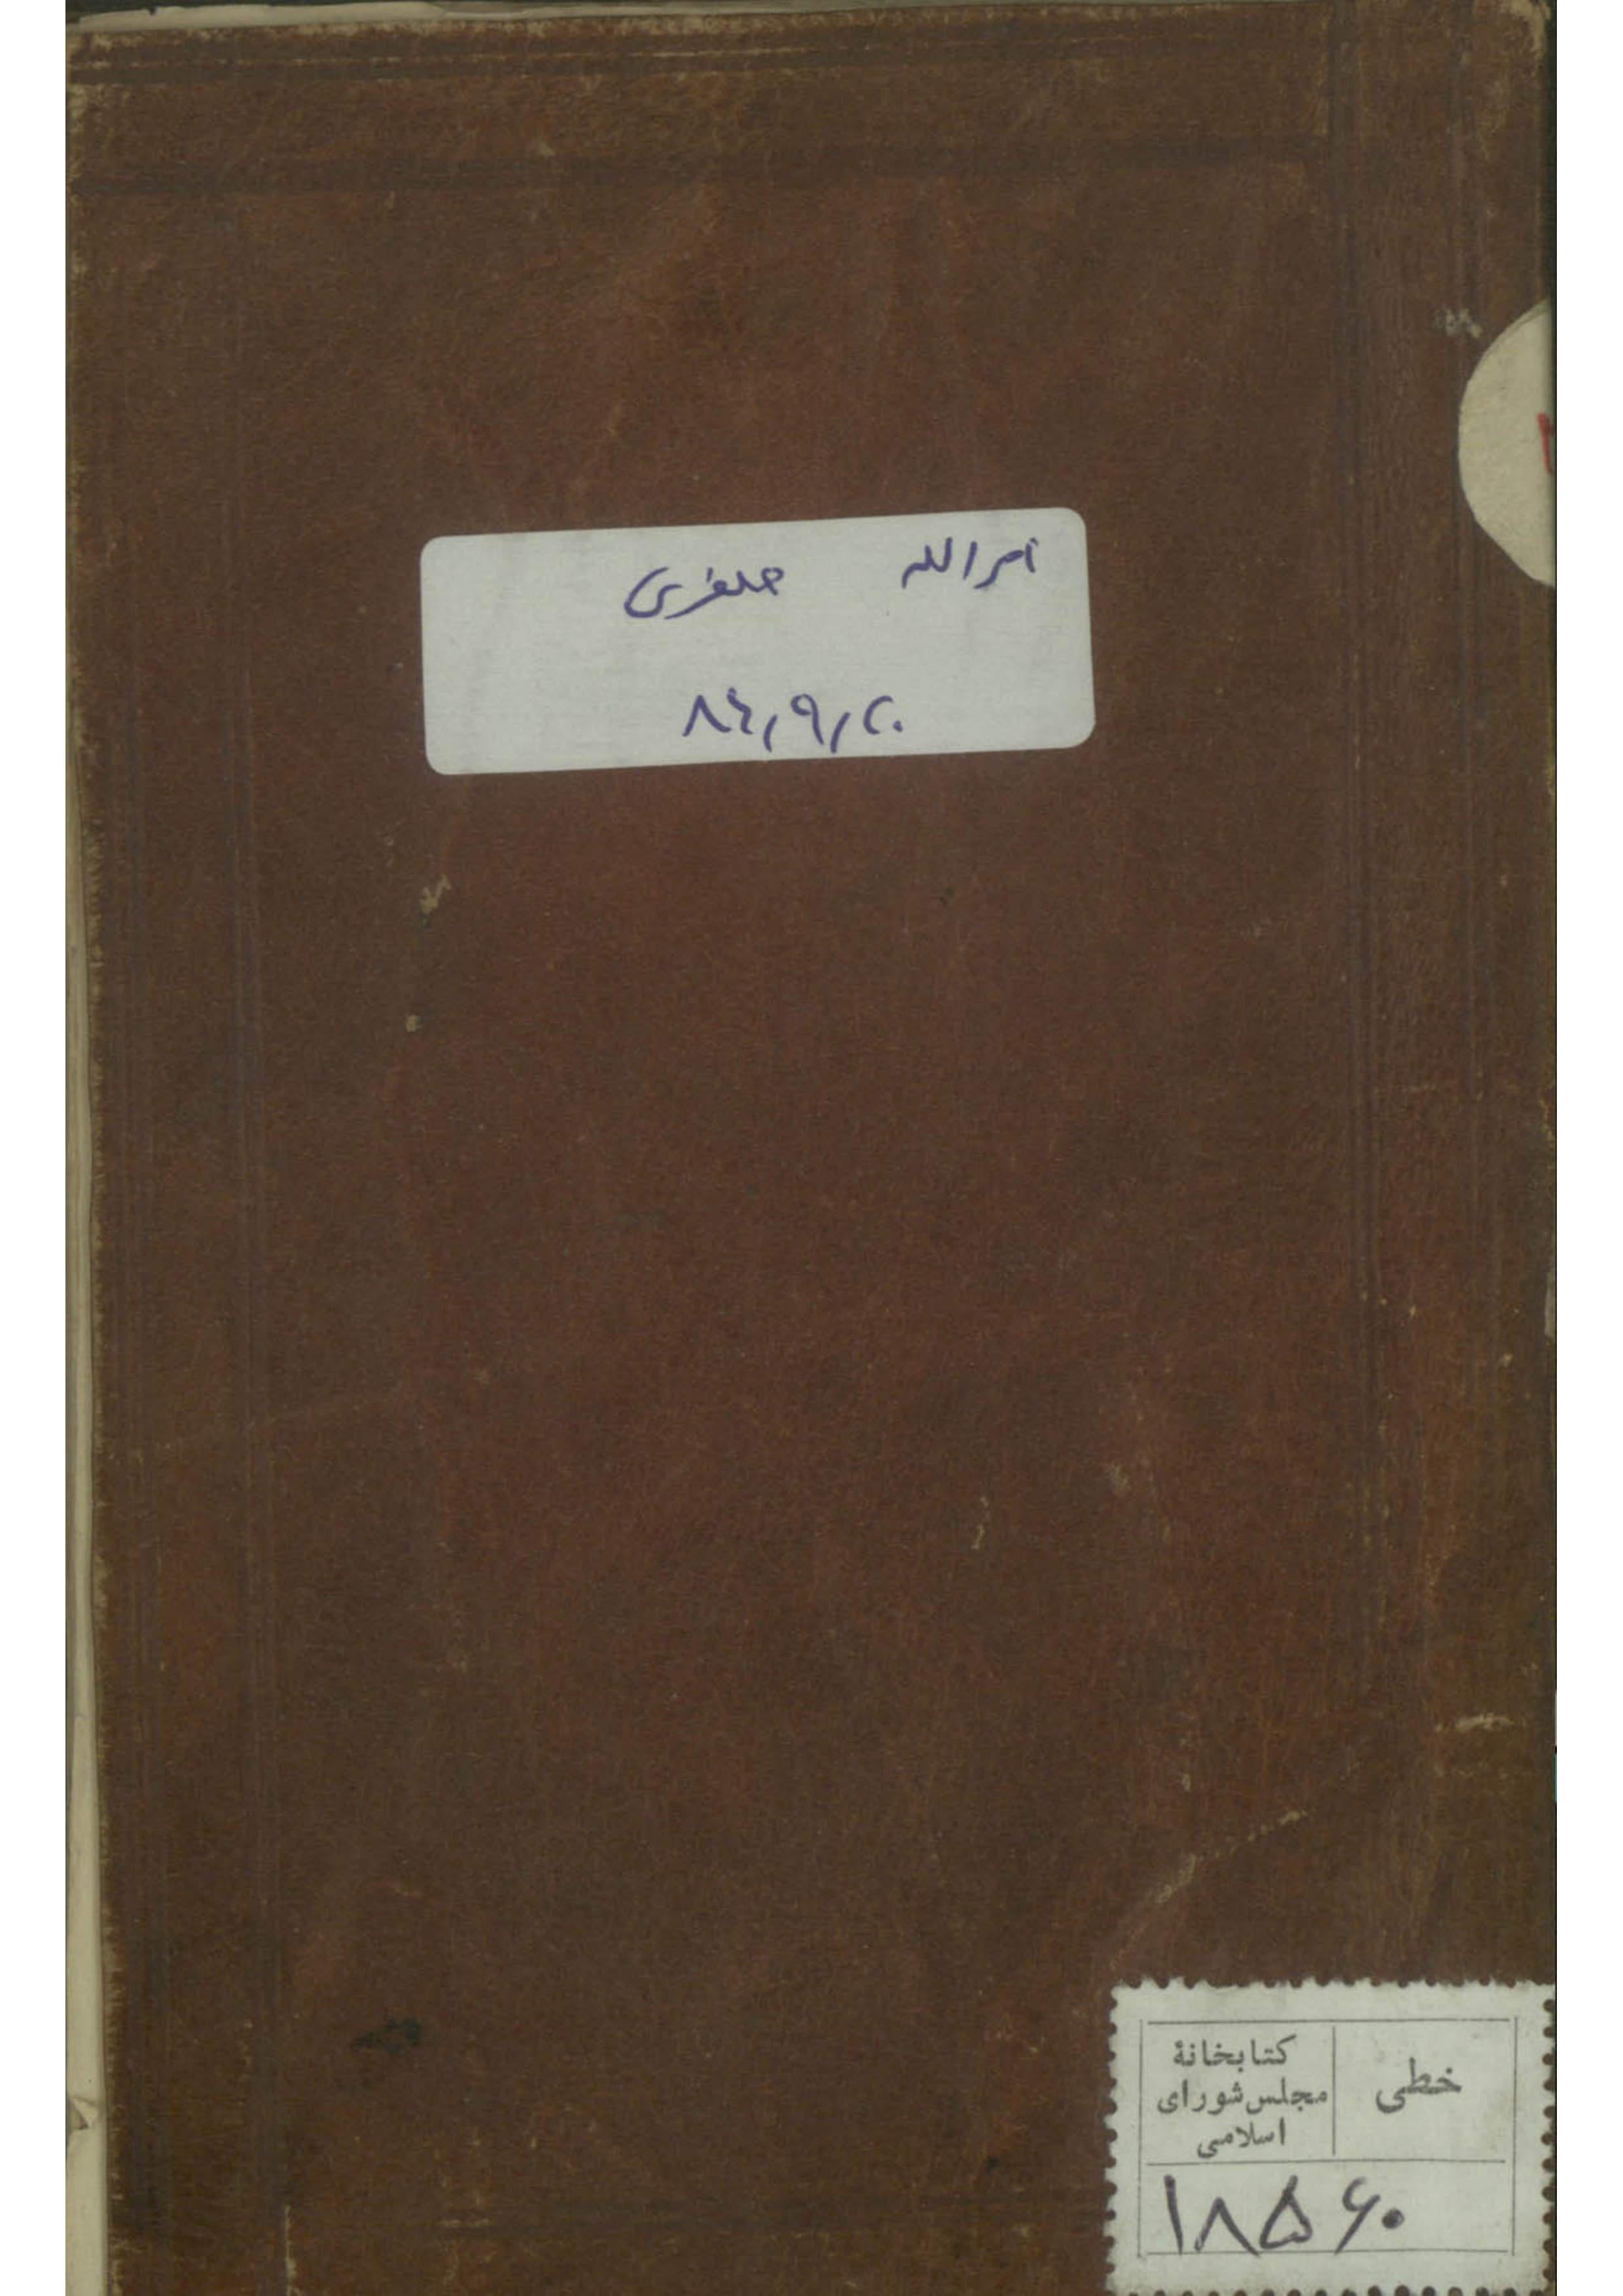 امرالله صفری
۸۴,۹,۲۰
خطی
کتابخانهٔ
مجلس شورای
اسلامی
۱۸۵۶۰